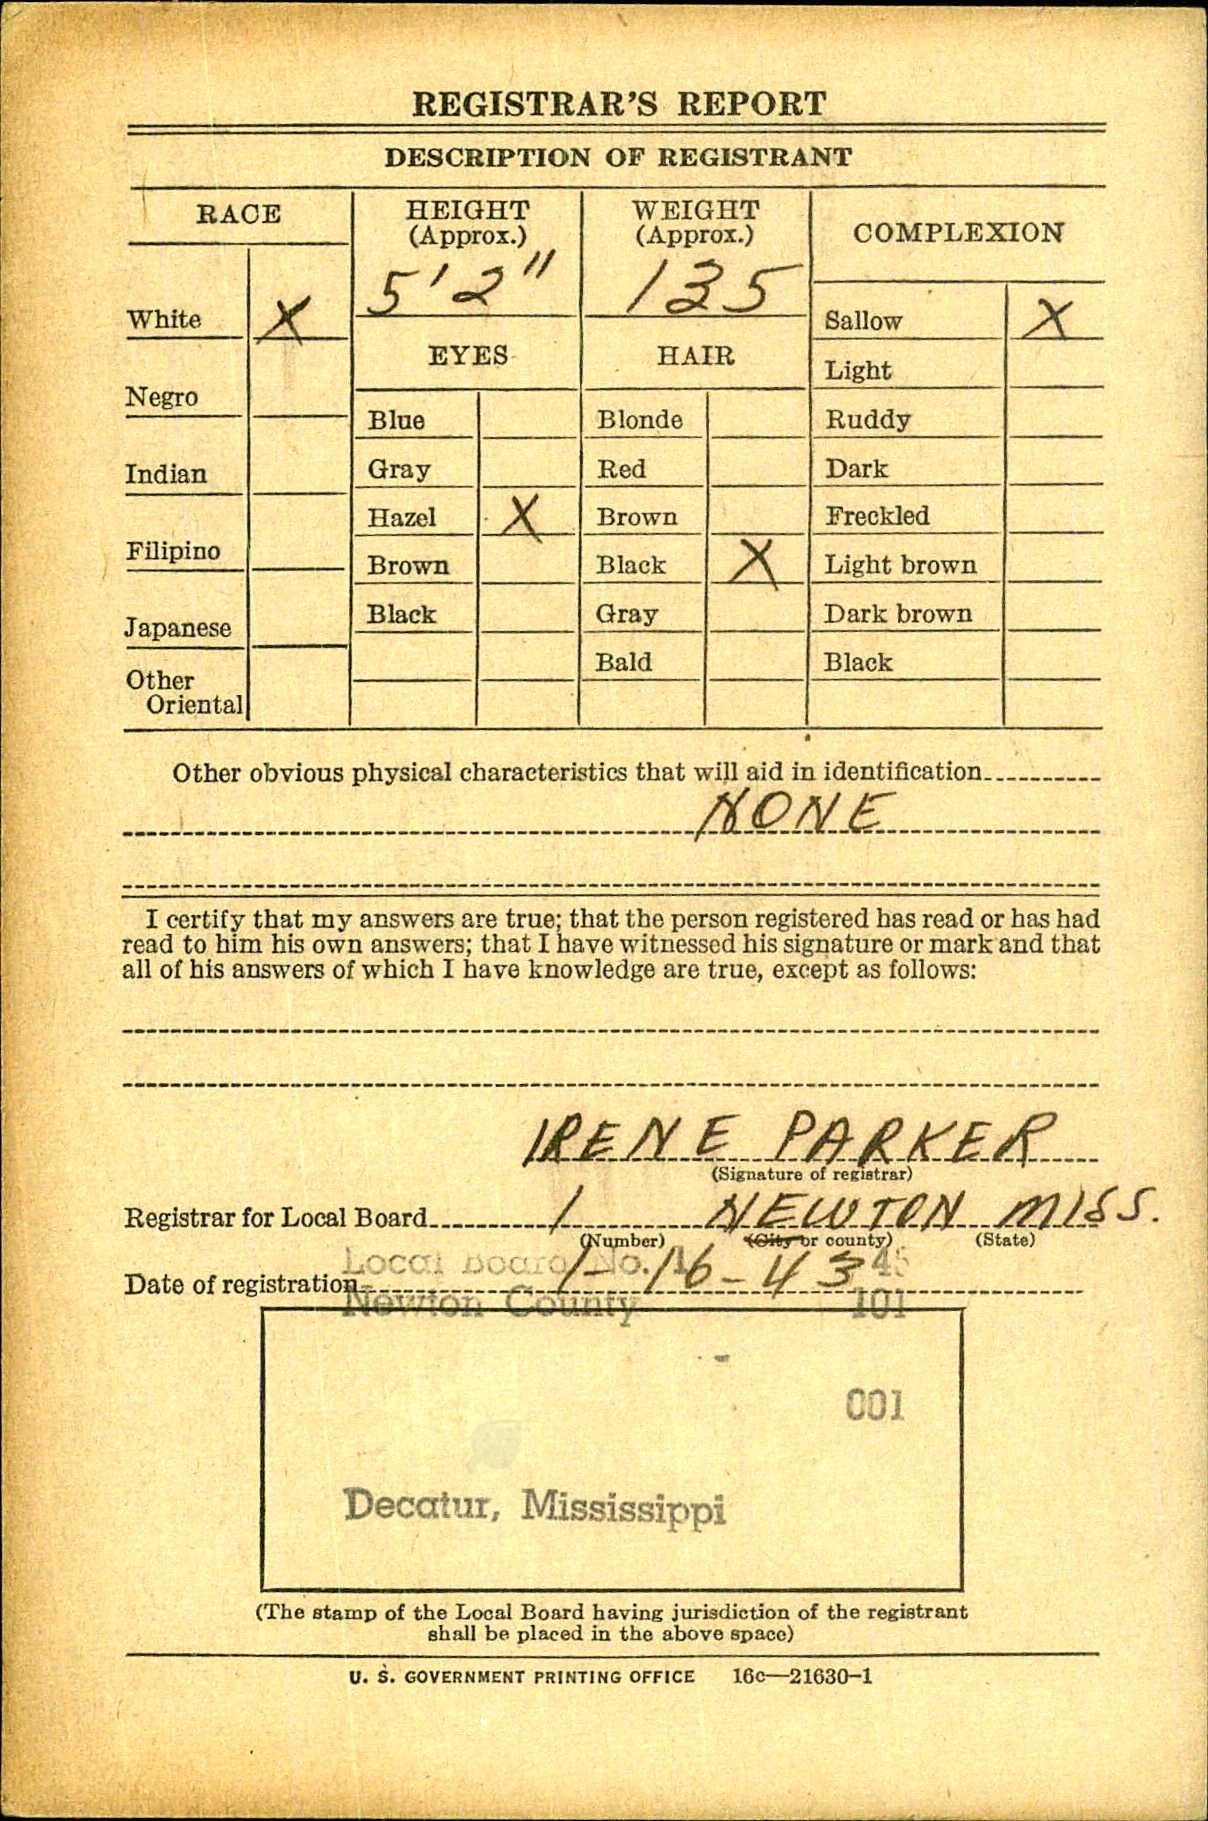 REGISTRAR'S REPORT
DESCRIPTION OF REGISTRANT
RACE
HEIGHT
(Approx.)
WEIGHT
(Approx.)
COMPLEXION
5' 2"
135
White X
Sallow X
EYES
HAIR
Light
Negro
Blue
Blonde
Ruddy
Indian
Gray
Red
Dark
Hazel X
Brown
Freckled
Filipino
Brown
Black X
Light brown
Japanese
Black
Gray
Dark brown
Other
Oriental
Bald
Black
Other obvious physical characteristics that will aid in identification
NONE
I certify that my answers are true; that the person registered has read or has had
read to him his own answers; that I have witnessed his signature or mark and that
all of his answers of which I have knowledge are true, except as follows:
IRENE PARKER
(Signature of registrar)
Registrar for Local Board 1 NEWTON MISS.
(Number) (City or county) (State)
Local Board No. 1 45
Date of registration 1-16-43
Newton County 101
001
Decatur, Mississippi
(The stamp of the Local Board having jurisdiction of the registrant
shall be placed in the above space)
U. S. GOVERNMENT PRINTING OFFICE 16c—21630-1